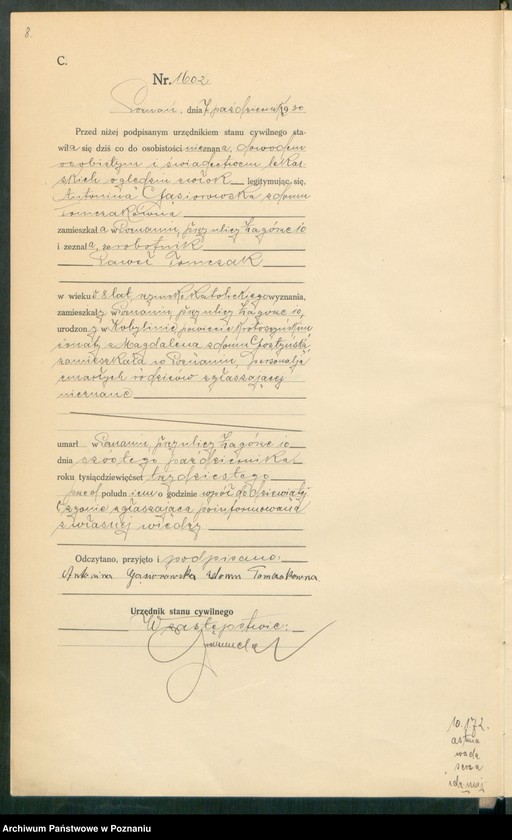 8.
C.
Nr. 1602
Poznań, dnia 7 października 1930
Przed niżej podpisanym urzędnikiem stanu cywilnego sta-
wiła się dziś co do osobistości nieznana, dowodem
osobistym i świadectwem lekar-
skich oględzin zwłok legitymując się,
Antonina Gąsiorowska z domu
Tomczakówna
zamieszkała w Poznaniu, przy ulicy Zagórze 10
i zeznała, że robotnik
Paweł Tomczak
w wieku 58 lat, rzymsko katolickiego wyznania,
zamieszkały w Poznaniu, przy ulicy Zagórze 10,
urodzony w Kobylinie powiecie Krotoszyńskim
żonaty z Magdaleną z domu
zamieszkałą w Poznaniu, personalje
zmarłych rodziców zgłaszającej
nieznane
umarł w Poznaniu, przy ulicy Zagórze 10
dnia szóstego października
roku tysiącdziewięćset trzydziestego
przed południem o godzinie wpół do dziewiątej
O zgonie zgłaszająca poinformowana
z własnej wiedzy
Odczytano, przyjęto i podpisano:
Antonina Gąsiorowska z domu Tomczakówna
Urzędnik stanu cywilnego
W zastępstwie:
10. 172.
astma
wada
serca
Archiwum Państwowe w Poznaniu